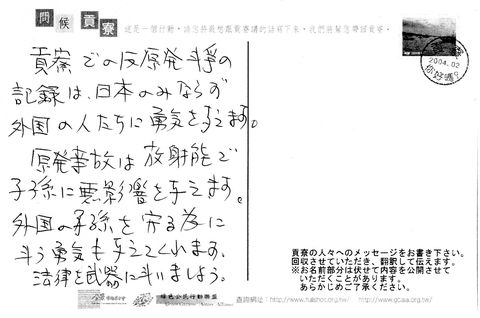 問候貢寮
這是一個行動，請您將最想跟貢寮講的話寫下來，我們將幫您帶回貢寮。
貢寮での反原発斗争の
記録は、日本のみならず
外国の人たちに勇気を与えます。
原発事故は放射能で
子孫に悪影響を与えます。
外国の子孫を守る為に
斗う勇気も与えてくれます。
法律を武器に斗いましょう。
2004.02
貢寮の人々へのメッセージをお書き下さい。
回収させていただき、翻訳して伝えます。
※お名前部分は伏せて内容を公開させて
いただくことがあります。
あらかじめご了承ください。
綠色公民行動聯盟
查詢網址：http://www.hutshot.org.tw/ http://www.gcaa.org.tw/